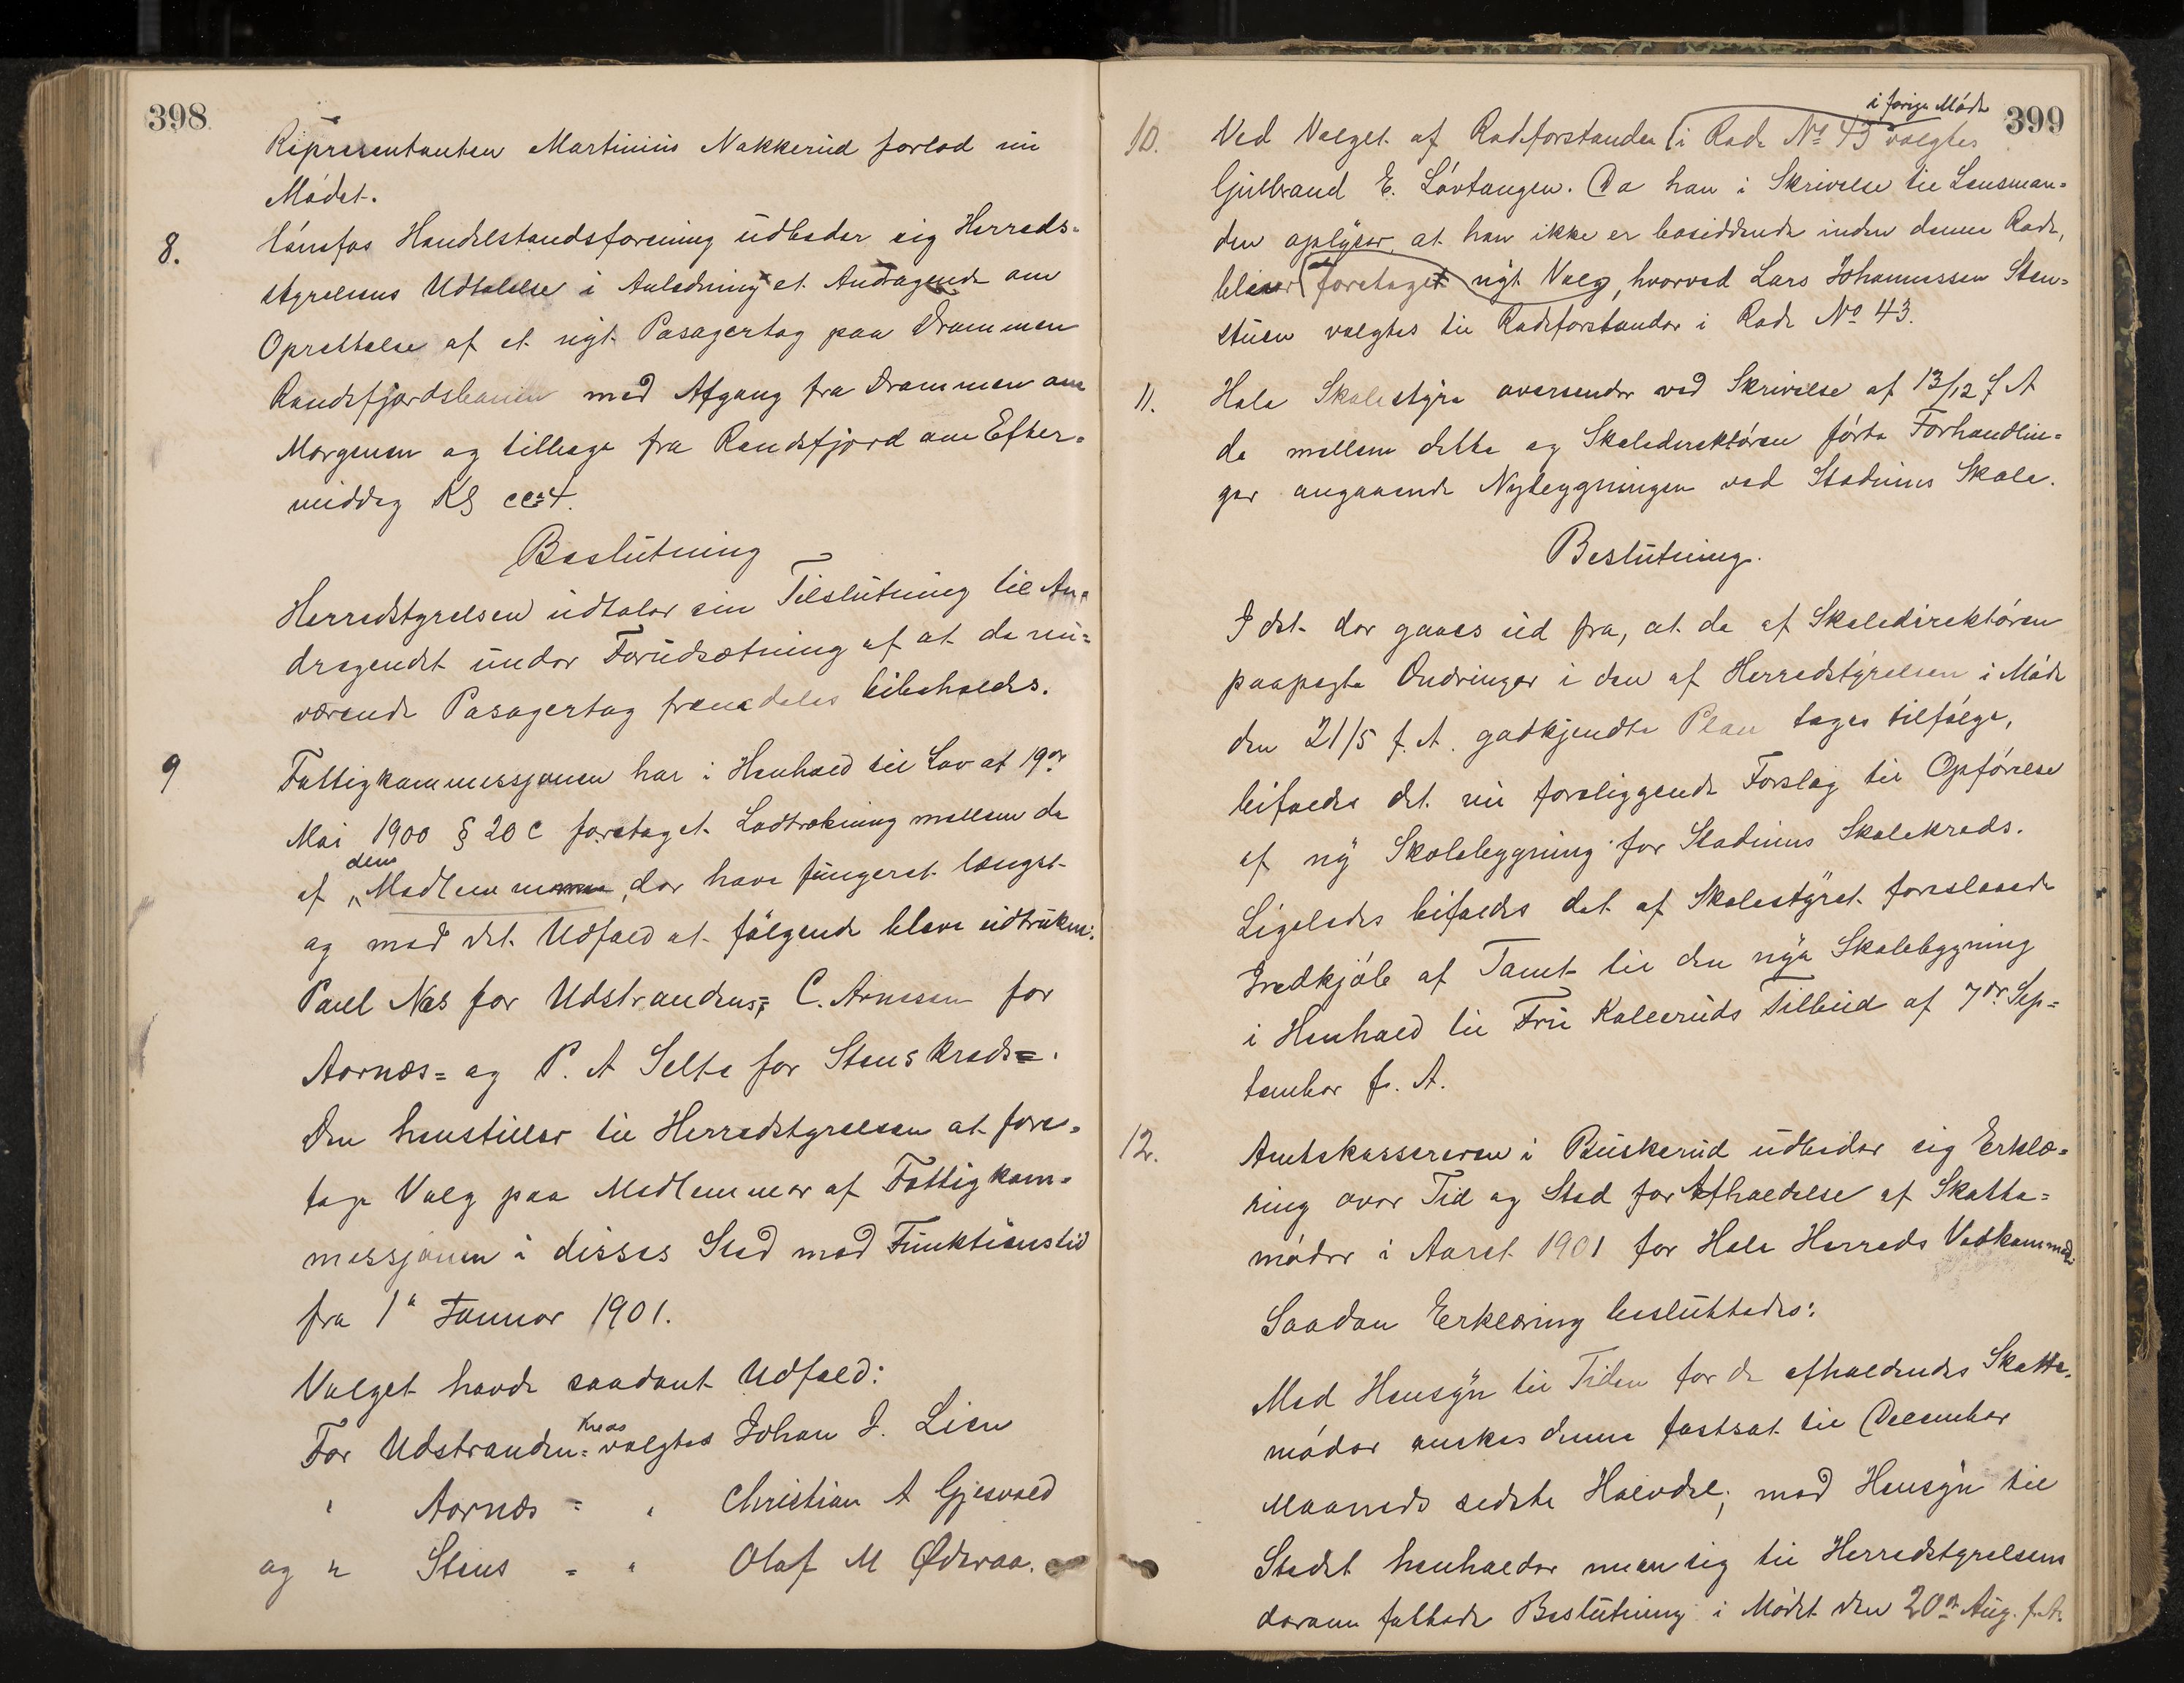 398
Representanten Martinius Nakkerud forlod nu
Mødet.
8. Hønefos Handelstandsforening udbeder sig Herreds=
styrelsens Udtalelse i Anledning et Andragende om
Oprettelse af et nyt Pasagertog paa Drammen
Randsfjordsbanen med Afgang fra Drammen om
Morgenen og tilbage fra Randsfjord om Efter=
middag Kl ca 4.
Beslutning
Herredstyrelsen udtaler sin Tilslutning til An=
dragendet under Forudsætning af at de nu=
værende Pasagertog fremdeles bibeholdes.
9 Fattigkommissjonen har i Henhold til Lov af 19de
Mai 1900 § 20 c foretaget Lodtrækning mellem de
af dens Medlemmer, der have fungeret længst
og med det Udfald at følgende bleve udtrukne:
Paul Næs for Udstrandens= C. Arnesen for
Aarnæs= og P. A Selte for Stens Kreds=.
Den henstiller til Herredstyrelsen at fore=
tage Valg paa Medlemmer af Fattigkom=
messjonen i disses Sted med Funktionstid
fra 1ste Januar 1901.
Valget havde saadant Udfald:
For Udstranden= Kreds valgtes Johan J. Lien
" Aarnæs = " Christian A Gjesvold
og " Stens = " Olaf M Øderaa.
399
i forige Møde
10. Ved Valget af Rodeforstander i Rode No 43 valgtes
Gulbrand E. Løvtangen. Da han i Skrivelse til Lensman=
den oplyser, at han ikke er bosiddende inden denne Rode,
blever foretaget nyt Valg, hvorved Lars Johannessen Sten=
stuen valgtes til Rodeforstander i Rode No 43.
11. Hole Skolestyre oversender ved Skrivelse af 13/12 f A
de mellem dette og Skoledirektøren førte Forhandlin=
ger angaaende Nybygningen ved Stadums Skole.
Beslutning.
I det der gaaes ud fra, at de af Skoledirektøren
paapegte Ændringer i den af Herredstyrelsen i Møde
den 21/5 f. A. godkjendte Plan tages tilfølge,
bifaldes det nu foreliggende Forslag til Opførelse
af ny Skolebygning for Stadums Skolekreds.
Ligeledes bifaldes det af Skolestyret foreslaaede
Indkjøb af Tomt til den nye Skolebygning
i Henhold til Fru Kolleruds Tilbud af 7de Sep=
tember f. A.
12. Amtskassereren i Buskerud udbeder sig Erklæ=
ring over Tid og Sted for Afholdelse af Skatte=
møder i Aaret 1901 for Hole Herreds Vedkommende.
Saadan Erklæring besluttedes:
Med Hensyn til Tiden for de afholdendes Skatte=
møder ønskes denne fastsat til December
Maaneds sidste Halvdel; med Hensyn til
Stedet henholder man sig til Herredstyrelsens
derom fattede Beslutning i Mødet den 20de Aug. f. A.